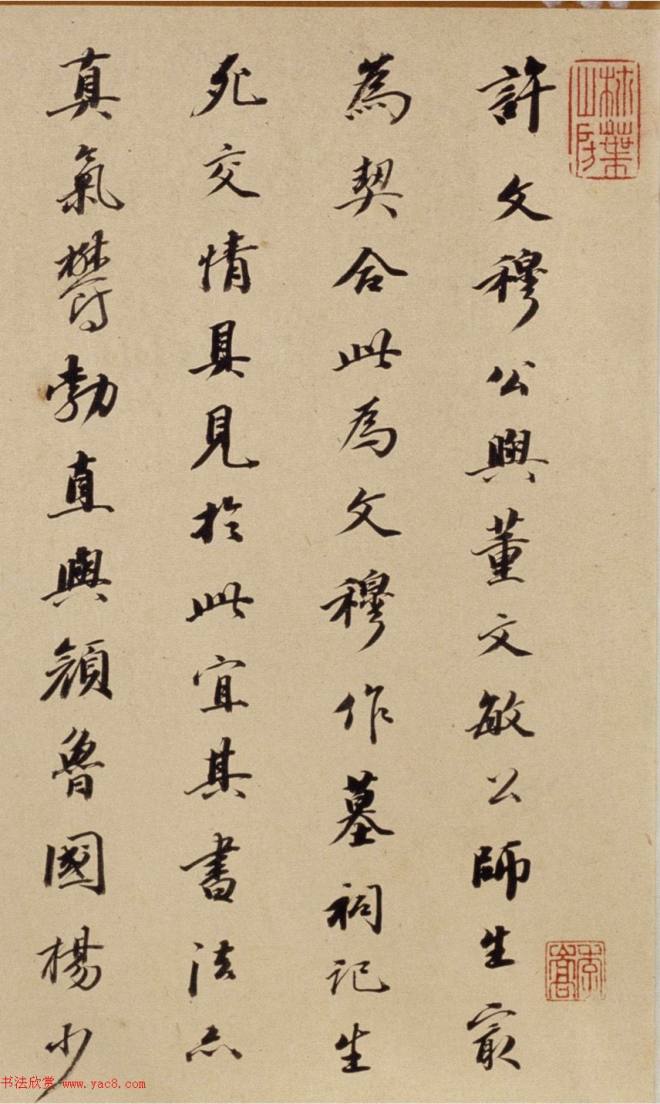 許文穆公與董文敏公師生最
為契合此為文穆作墓祠記生
死交情具見於此宜其書法亦
真氣鬱勃直與顏魯國楊少
書法欣賞 www.yac8.com